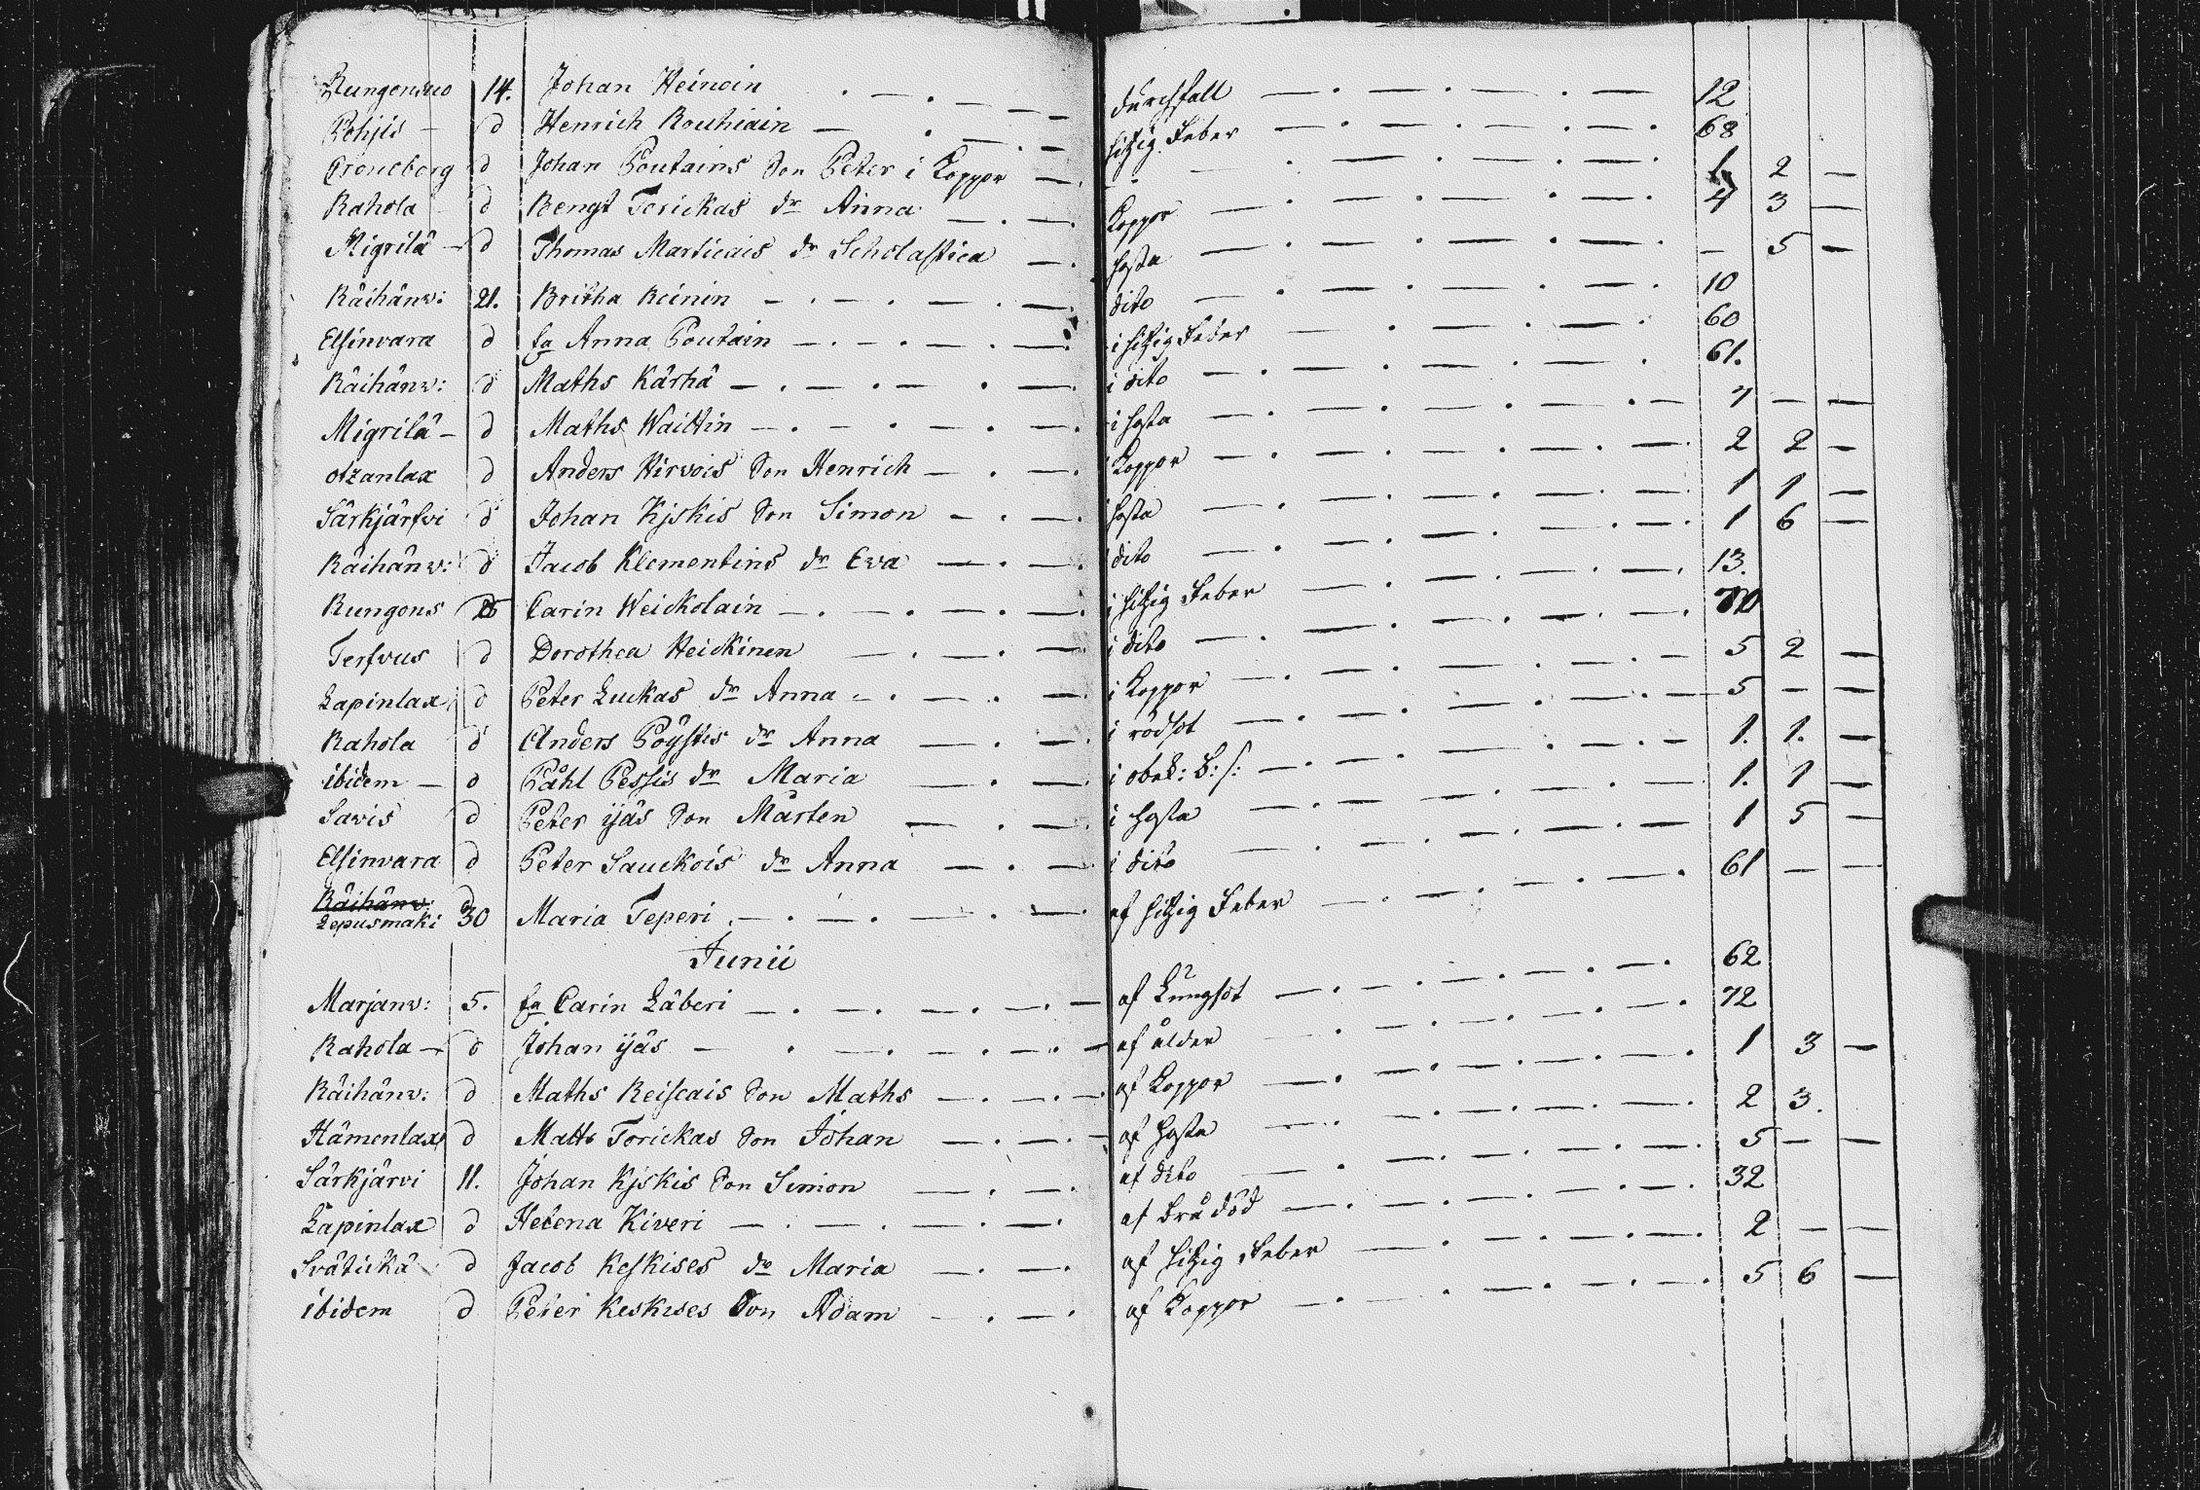 Rungonsuo 14. Johan Heinoin durchfall 12
Pohjis d Henrich Rouhiain hitzig Feber 68
Croneborg d Johan Poutains Son Peter i Koppor 2
Rahola d Bengt Torickas dr Anna Koppor 4 3
Migrilä d Thomas Marticais dr Scholastica hosta 5
Räihänw: 21. Britha Reinin dito 10
Elsinvara d Ea Anna Poutain i hitzig Feber 60
Räihänw: d Maths Kärhä i dito 61.
Migrilä d Maths Waittin i hosta
otzanlax d Anders Hirvois Son Henrich Koppor 2 2
Särkjärfvi d Johan Kjskis Son Simon hosta 1 1
Räihänw: d Jacob Klementins dr Eva dito 1 6
Rungons 25 Carin Weickolain i hitzig Feber 13.
Terfvus d Dorothea Heickinen i dito 70
Lapinlax d Peter Luckas dr Anna i Koppor 5 2
Rahola d Anders Pöystis dr Anna i rödsot 5
ibidem d Påhl Pessis dr Maria i obek: B: s: 1. 1.
Savis d Peter ijäs Son Mårten i hosta 1. 1
Elsinvara d Peter Sauckois dr Anna i dito 1 5
Räihänw:
Lepusmäki 30 Maria Teperi af hitzig Feber 61
Junii
Marjanw: 5. Ea Carin Läberi af Lungsot 62
Rahola d Johan ijäs af ålder 72
Räihänw: d Maths Reiscais Son Maths af Koppor 1 3
Hämenlax d Matts Torickas Son Johan af hosta 2 3.
Särkjärvi 11. Johan Kjskis Son Simon af dito 5
Lapinlax d Helena Kiveri af brådöd 32
Svätickä d Jacob Keskises dr Maria af hitzig Feber 2
ibidem d Peter Keskises Son Adam af Koppor 5 6